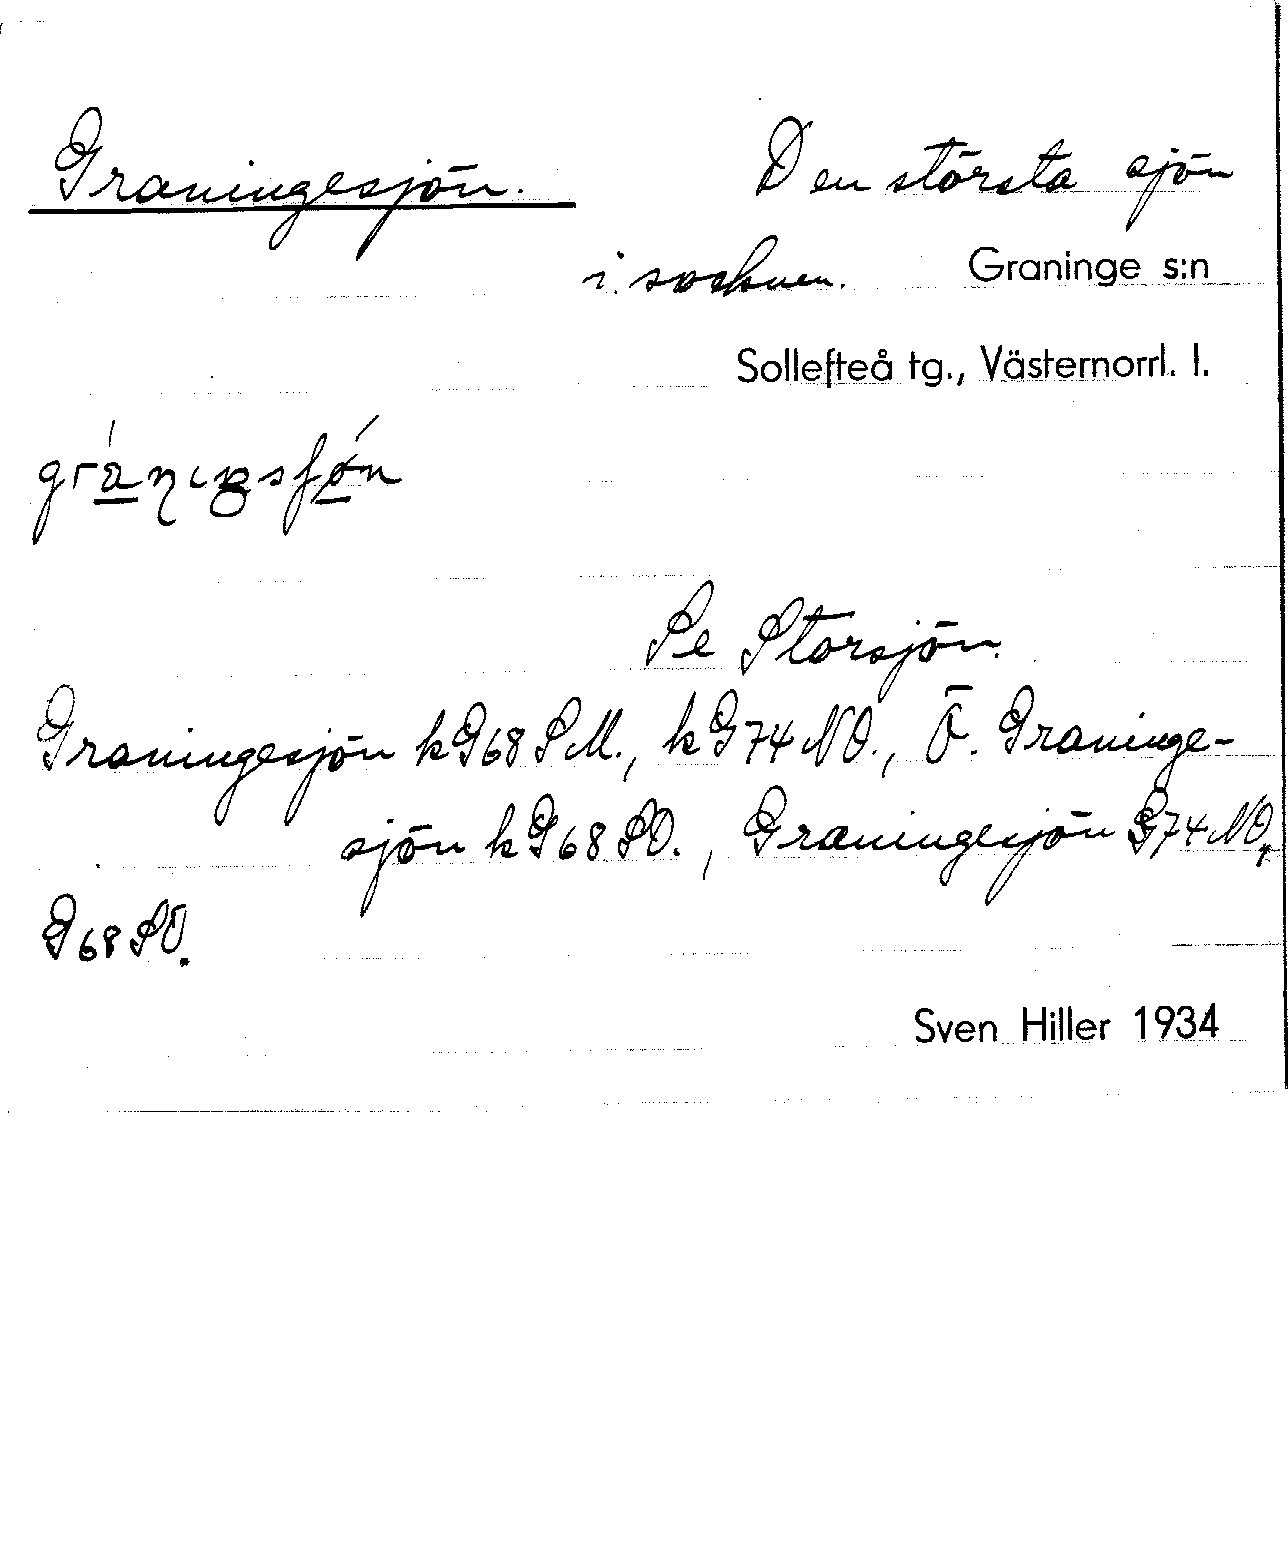 Graningesjön. Den största sjön
i socknen. Graninge s:n
Sollefteå tg., Västernorrl. l.
Se Storsjön.
Graningesjön kG68SM., kG74NO., Ö. Graninge-
sjön kG68SO., Graningesjön G74NO,
G68SO.
Sven Hiller 1934